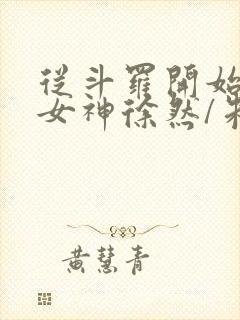 從斗羅開始
女神徐然/
黃慧青